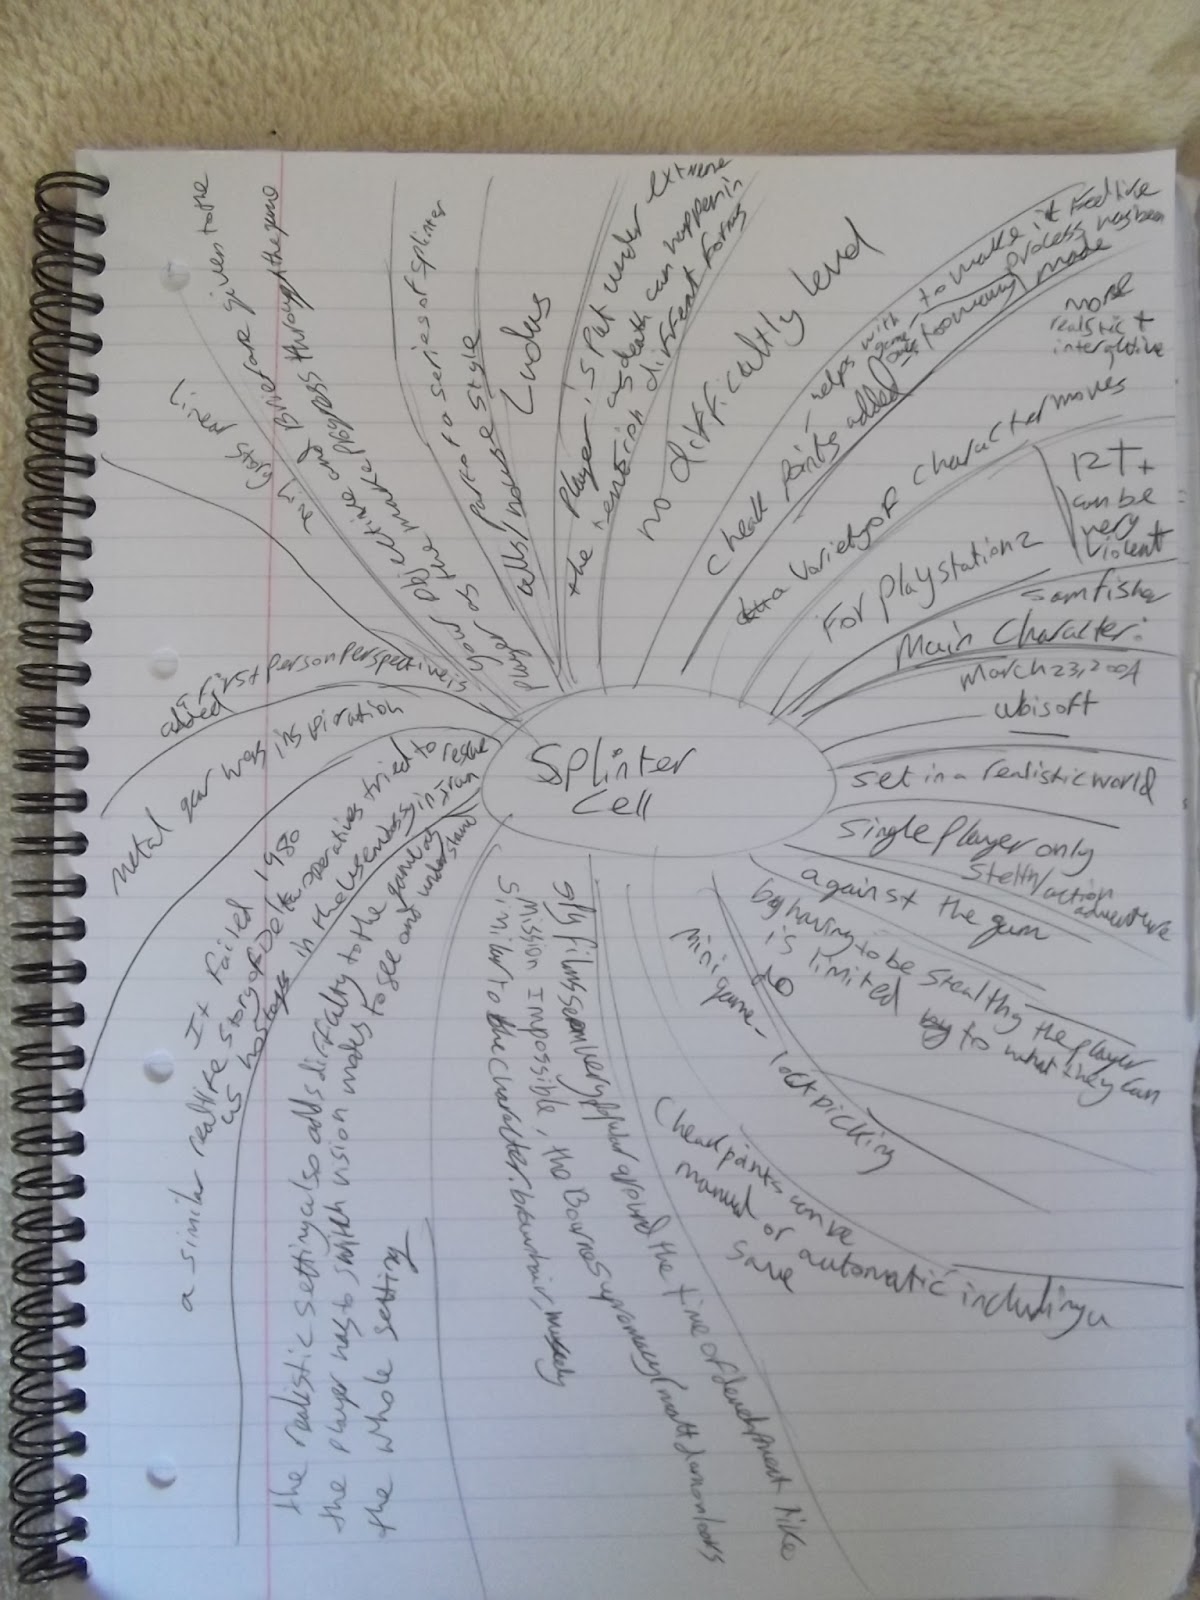 Splinter
Cell
Ludus
parts to a series of splinter
cells/not use style
player is put under extreme
death can happen in
different forms
no difficultly level
Check points added
to make it feel like
process has been
made
more
realistic +
interactive
a variety of character moves
For Playstation 2
12T+
can be
very
violent
Main Character:
Sam fisher
March 23, 2004
Ubisoft
set in a realistic world
single player only
Stelth/action
adventure
against the gam
by having to be stealthy the player
is limited by to what they can
do
mini game - lock picking
Checkpoints can be
manual or automatic including a
save
spy films seem very popular around the time of development like
Mission Impossible, the Bourne supremacy (matt damon looks
similar to the character, brown hair,
the realistic setting also adds dirfculty to the game as
the player has to switch vision modes to see and understand
the whole setting
a similar real life story of Delta operatives tried to rescue
us hostages in the us embassy in Iran
It failed 1980
Metal gear was inspiration
First person perspective is
added
your objective and Brief are given to the
player as they make progress through the game